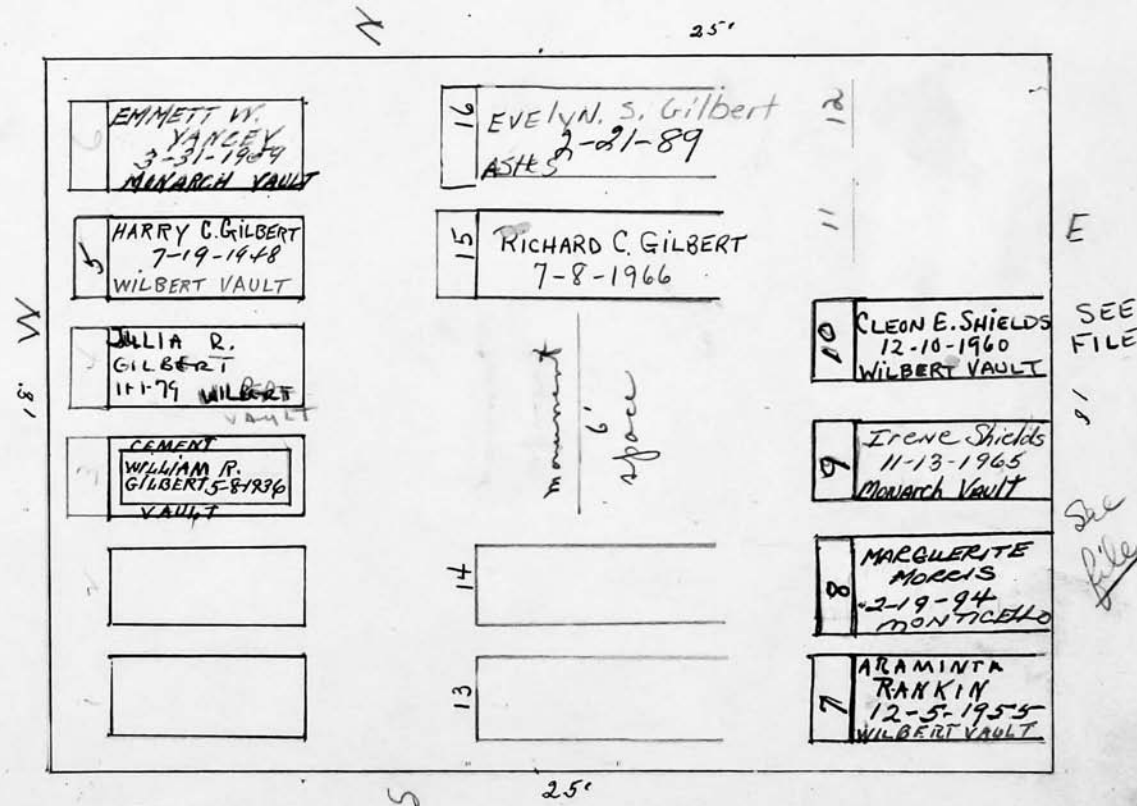 N
25'
6
EMMETT W.
YANCEY
3-31-1959
MONARCH VAULT
5
HARRY C. GILBERT
7-19-1948
WILBERT VAULT
4
JULIA R.
GILBERT
11-1-79 WILBERT
VAULT
3
CEMENT
WILLIAM R.
GILBERT 5-8-1936
VAULT
2
1
W
18'
16
EVELYN. S. Gilbert
2-21-89
ASHES
15
RICHARD C. GILBERT
7-8-1966
monument
6'
space
14
13
12
11
10
CLEON E. SHIELDS
12-10-1960
WILBERT VAULT
9
Irene Shields
11-13-1965
Monarch Vault
8
MARGUERITE
MORRIS
2-19-94
MONTICELLO
7
ARAMINTA
RANKIN
12-5-1955
WILBERT VAULT
E
SEE
FILE
See
file
S
25'